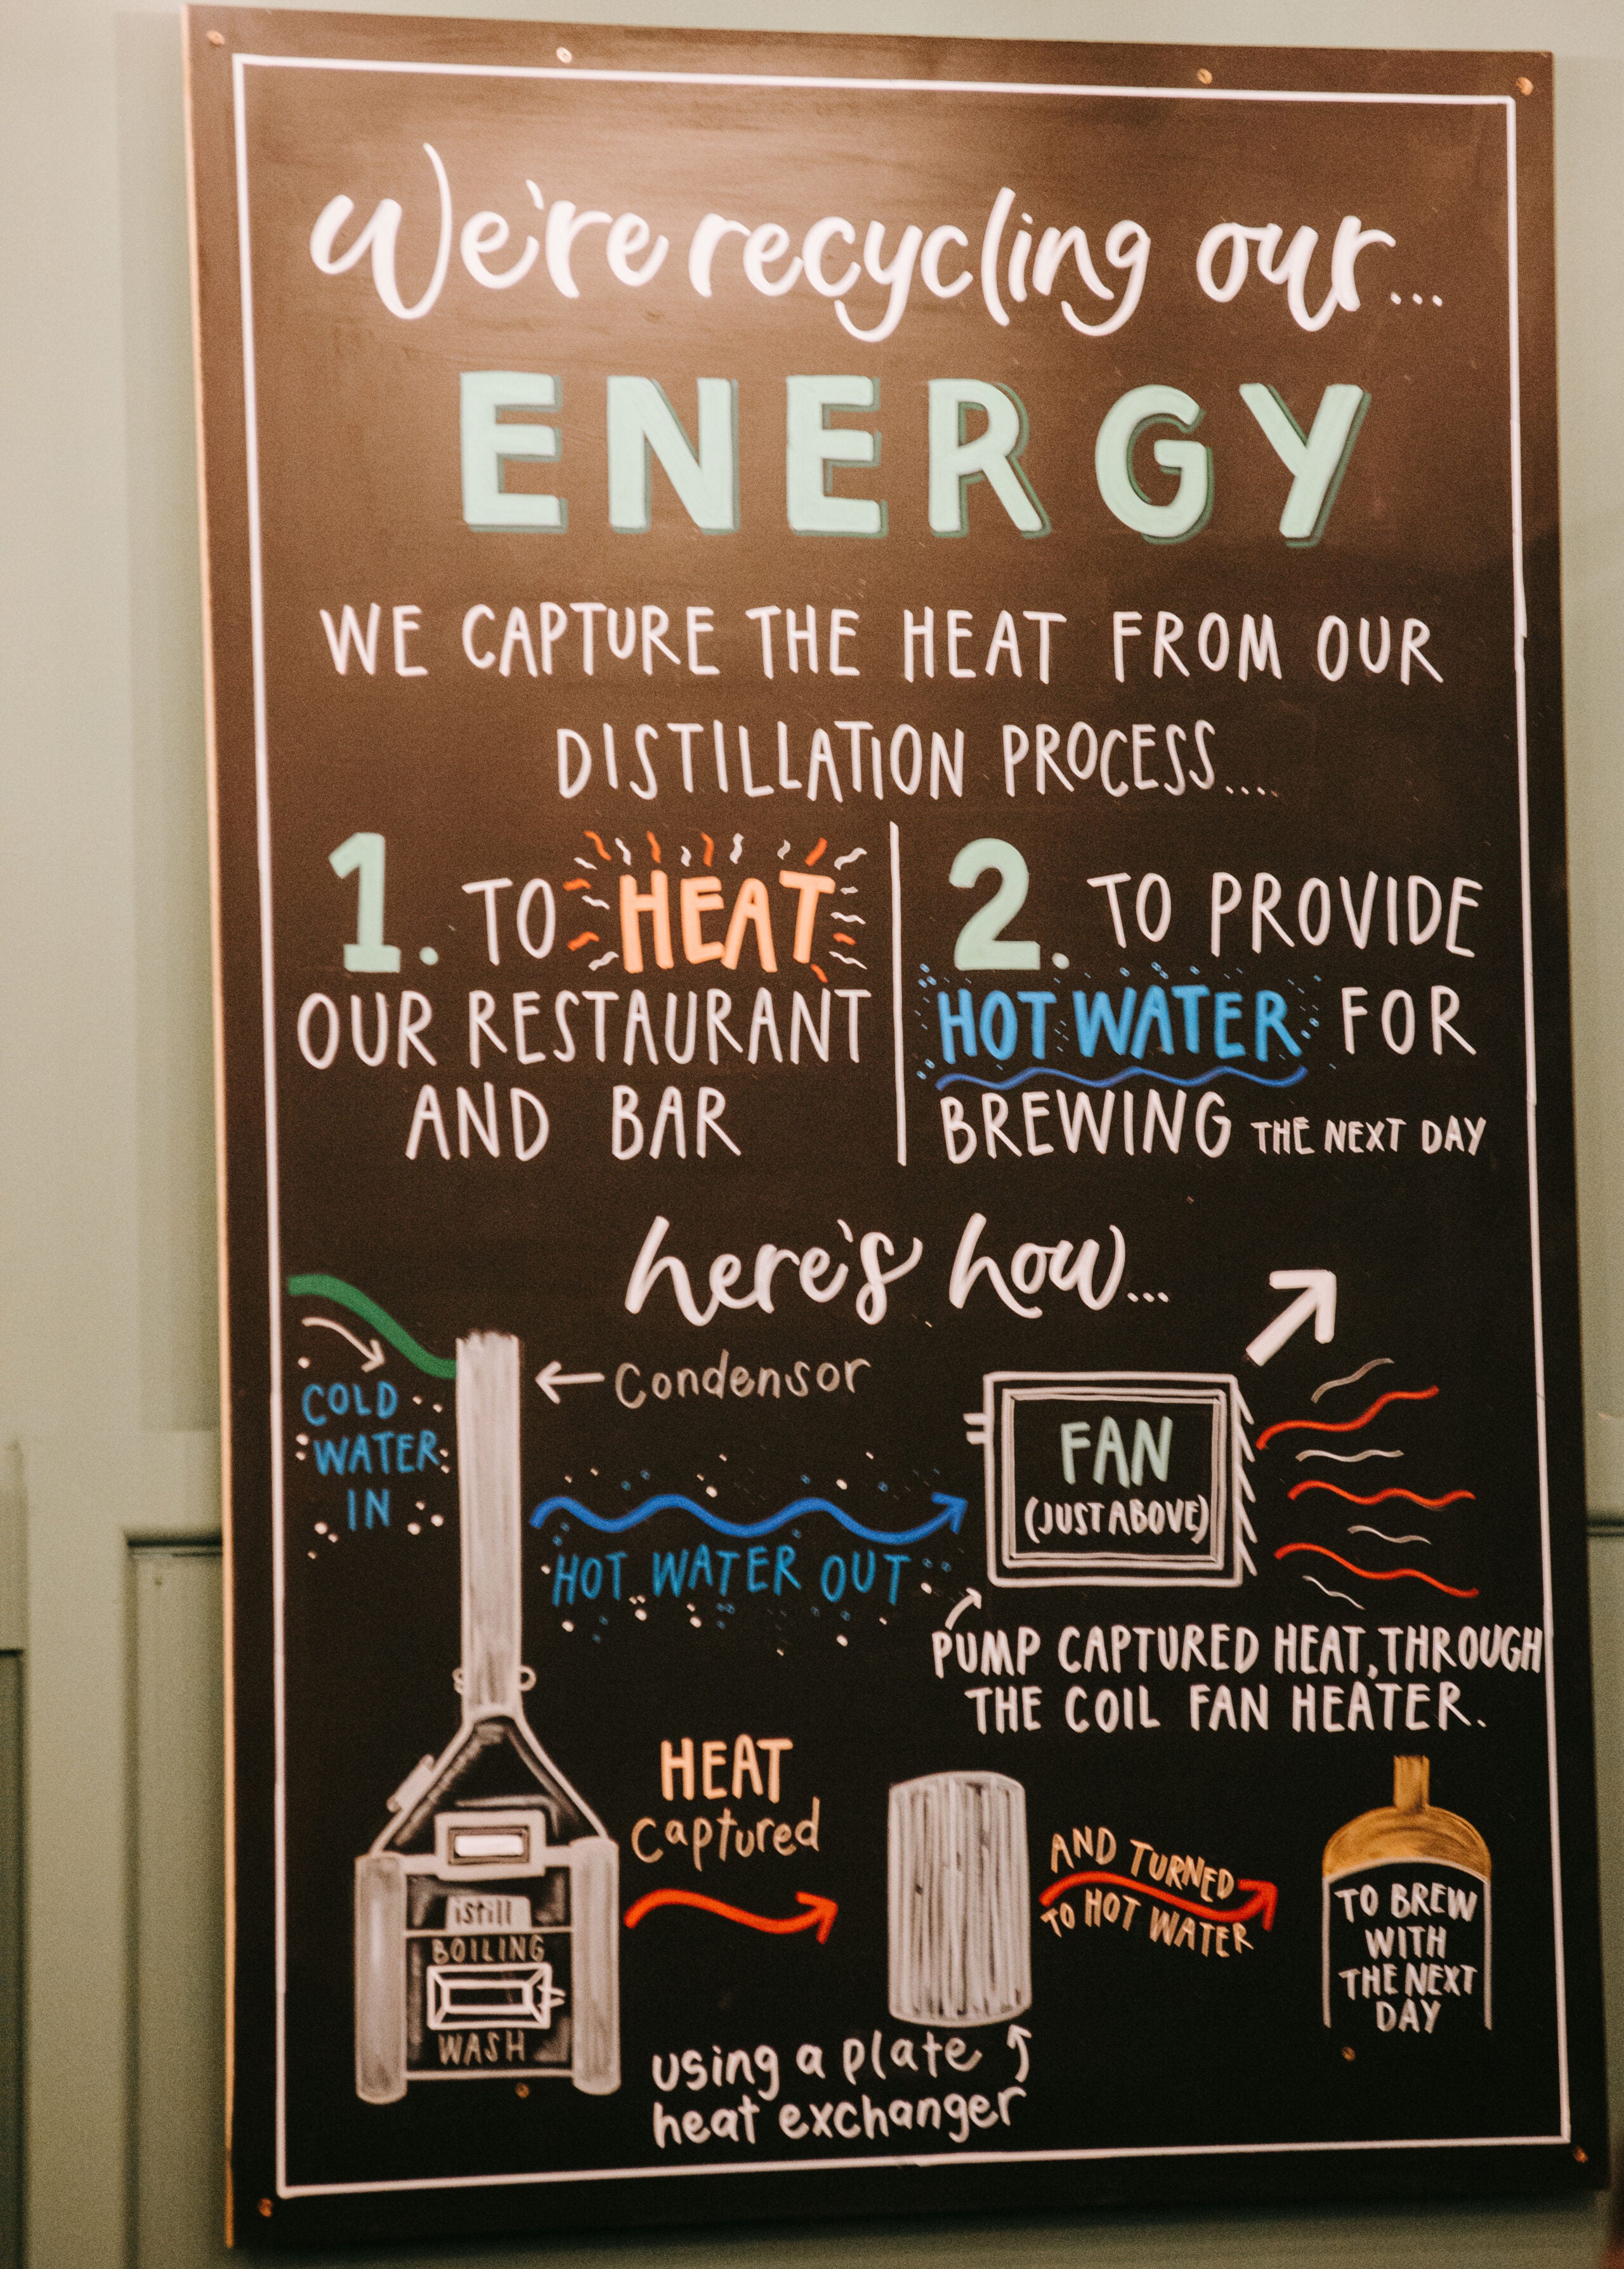 We're recycling our...
ENERGY
WE CAPTURE THE HEAT FROM OUR
DISTILLATION PROCESS....
1. TO HEAT
OUR RESTAURANT
AND BAR
2. TO PROVIDE
HOT WATER FOR
BREWING THE NEXT DAY
here's how...
COLD
WATER
IN
Condensor
HOT WATER OUT
FAN
(JUST ABOVE)
PUMP CAPTURED HEAT, THROUGH
THE COIL FAN HEATER.
HEAT
captured
istill
BOILING
WASH
using a plate
heat exchanger
AND TURNED
TO HOT WATER
TO BREW
WITH
THE NEXT
DAY